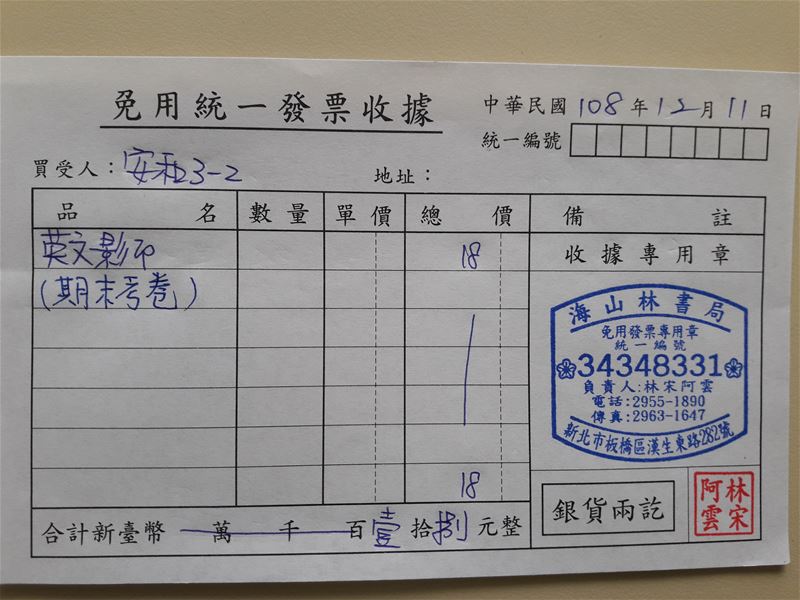 免用統一發票收據
中華民國 108 年 12 月 11 日
統一編號
買受人：安和3-2
地址：
品名 數量 單價 總價 備註
英文影印 18 收據專用章
(期末考卷)
海山林書局
免用發票專用章
統一編號
34348331
負責人:林宋阿雲
電話:2955-1890
傳真:2963-1647
新北市板橋區漢生東路282號
18
合計新臺幣 萬 千 百壹拾捌元整
銀貨兩訖
林宋阿雲